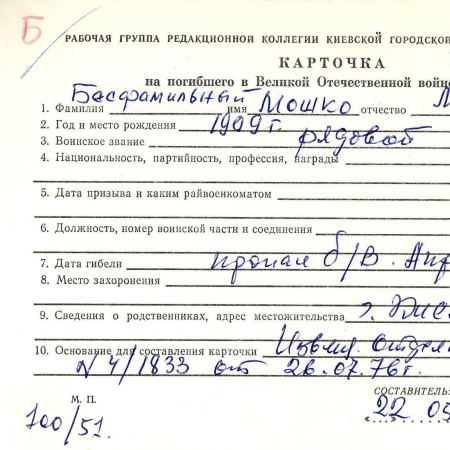 Б
РАБОЧАЯ ГРУППА РЕДАКЦИОННОЙ КОЛЛЕГИИ КИЕВСКОЙ ГОРОДСКОЙ
КАРТОЧКА
на погибшего в Великой Отечественной войне
1. Фамилия Бесфамильный имя Мошко отчество
2. Год и место рождения 1909 г.
3. Воинское звание рядовой
4. Национальность, партийность, профессия, награды
5. Дата призыва и каким райвоенкоматом
6. Должность, номер воинской части и соединения
7. Дата гибели пропал б/в. Апр
8. Место захоронения
9. Сведения о родственниках, адрес местожительства г. Кие
10. Основание для составления карточки Извещ. отдел
N 4/1833 от 26.07.76 г.
М. П.
СОСТАВИТЕЛЬ:
22 05
100/51.